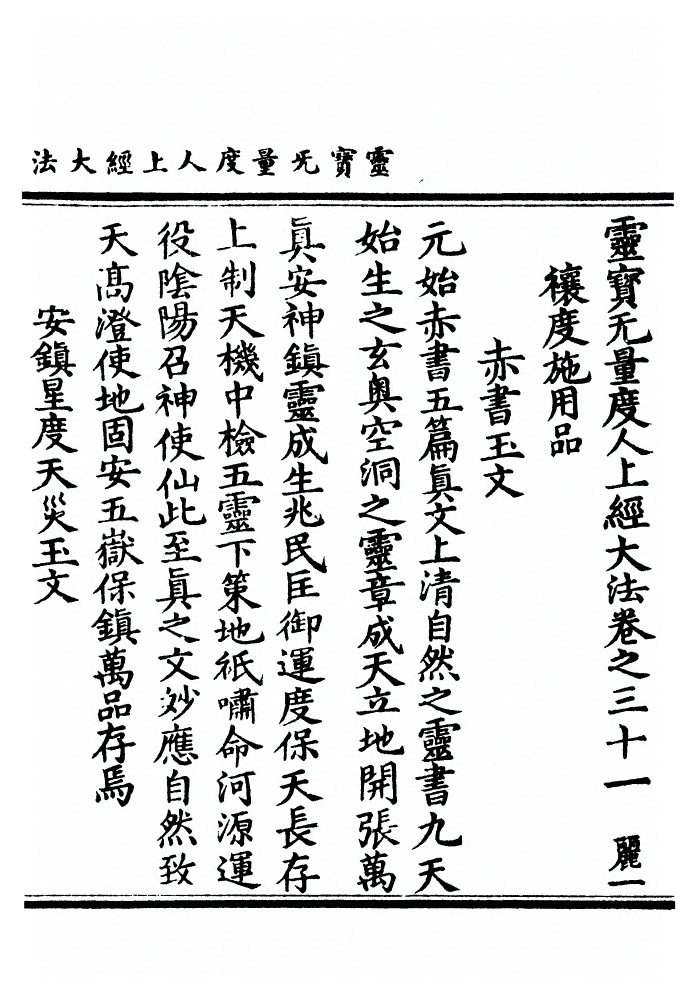 靈寶旡量度人上經大法
靈寶无量度人上經大法卷之三十一 麗一
禳度施用品
赤書玉文
元始赤書五篇眞文上清自然之靈書九天
始生之玄奧空洞之靈章成天立地開張萬
眞安神鎮靈成生兆民匡御運度保天長存
上制天機中檢五靈下策地祇嘯命河源運
役陰陽召神使仙此至眞之文妙應自然致
天髙澄使地固安五嶽保鎮萬品存焉
安鎮星度天災玉文